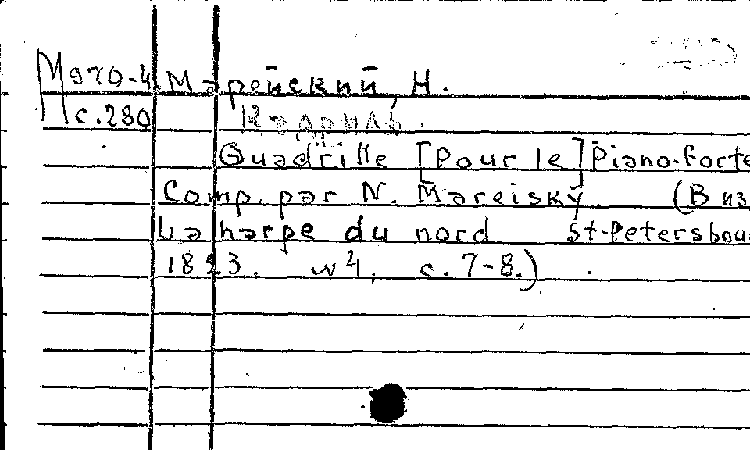 М970-4 Марейский, Н.
с.280 Кадриль.
Quadrille [pour le] piano-forte
Comp. par N. Mareisky (В из
La harpe du nord St-Petersbou
1823. №4. с. 7-8.)